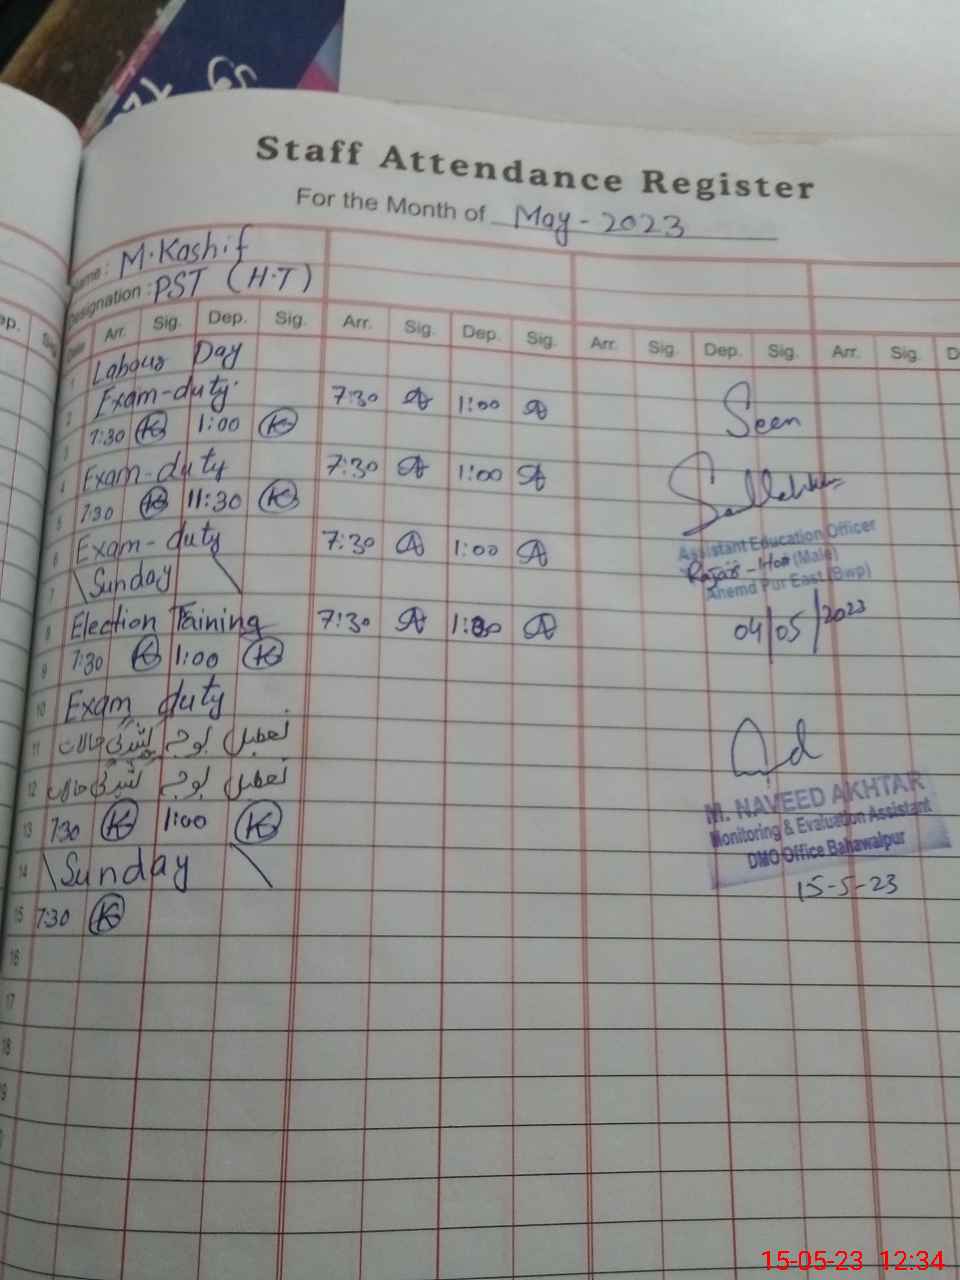 Staff Attendance Register
For the Month of May - 2023
Name: M. Kashif
Designation: PST (H.T)
Date Arr. Sig. Dep. Sig. Arr. Sig. Dep. Sig. Arr. Sig. Dep. Sig. Arr. Sig. D
1 Labour Day
2 Exam-duty. 7:30 1:00
3 7:30 K 1:00 K
4 Exam-duty 7:30 1:00
5 7:30 K 11:30 K
6 Exam-duty 7:30 1:00
7 Sunday
8 Election Taining 7:30
9 7:30 K 1:00 K
10 Exam duty
11 تعطیل بوجہ حالات
12 تعطیل بوجہ حالات
13 7:30 K 1:00 K
14 Sunday
15 7:30 K
16
17
18
Seen
Assistant Education Officer
(Male)
Ahemd Pur East (Bwp)
04/05/2023
M. NAVEED AKHTAR
Monitoring & Evaluation Assistant
DMO Office Bahawalpur
15-5-23
15-05-23 12:34